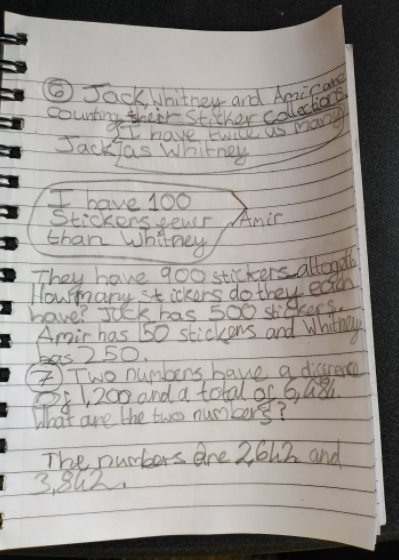 ⑥ Jack, Whitney and Amir are
counting their sticker collections.
I have twice as many
Jack as Whitney
I have 100
Stickers fewer
than Whitney
Amir
They have 900 stickers altogeth
How many stickers do they each
have? Jack has 500 stickers.
Amir has 150 stickers and Whitney
has 250.
⑦ Two numbers have a difference
of 1,200 and a total of 6,484.
What are the two numbers?
The numbers are 2,642 and
3,842.